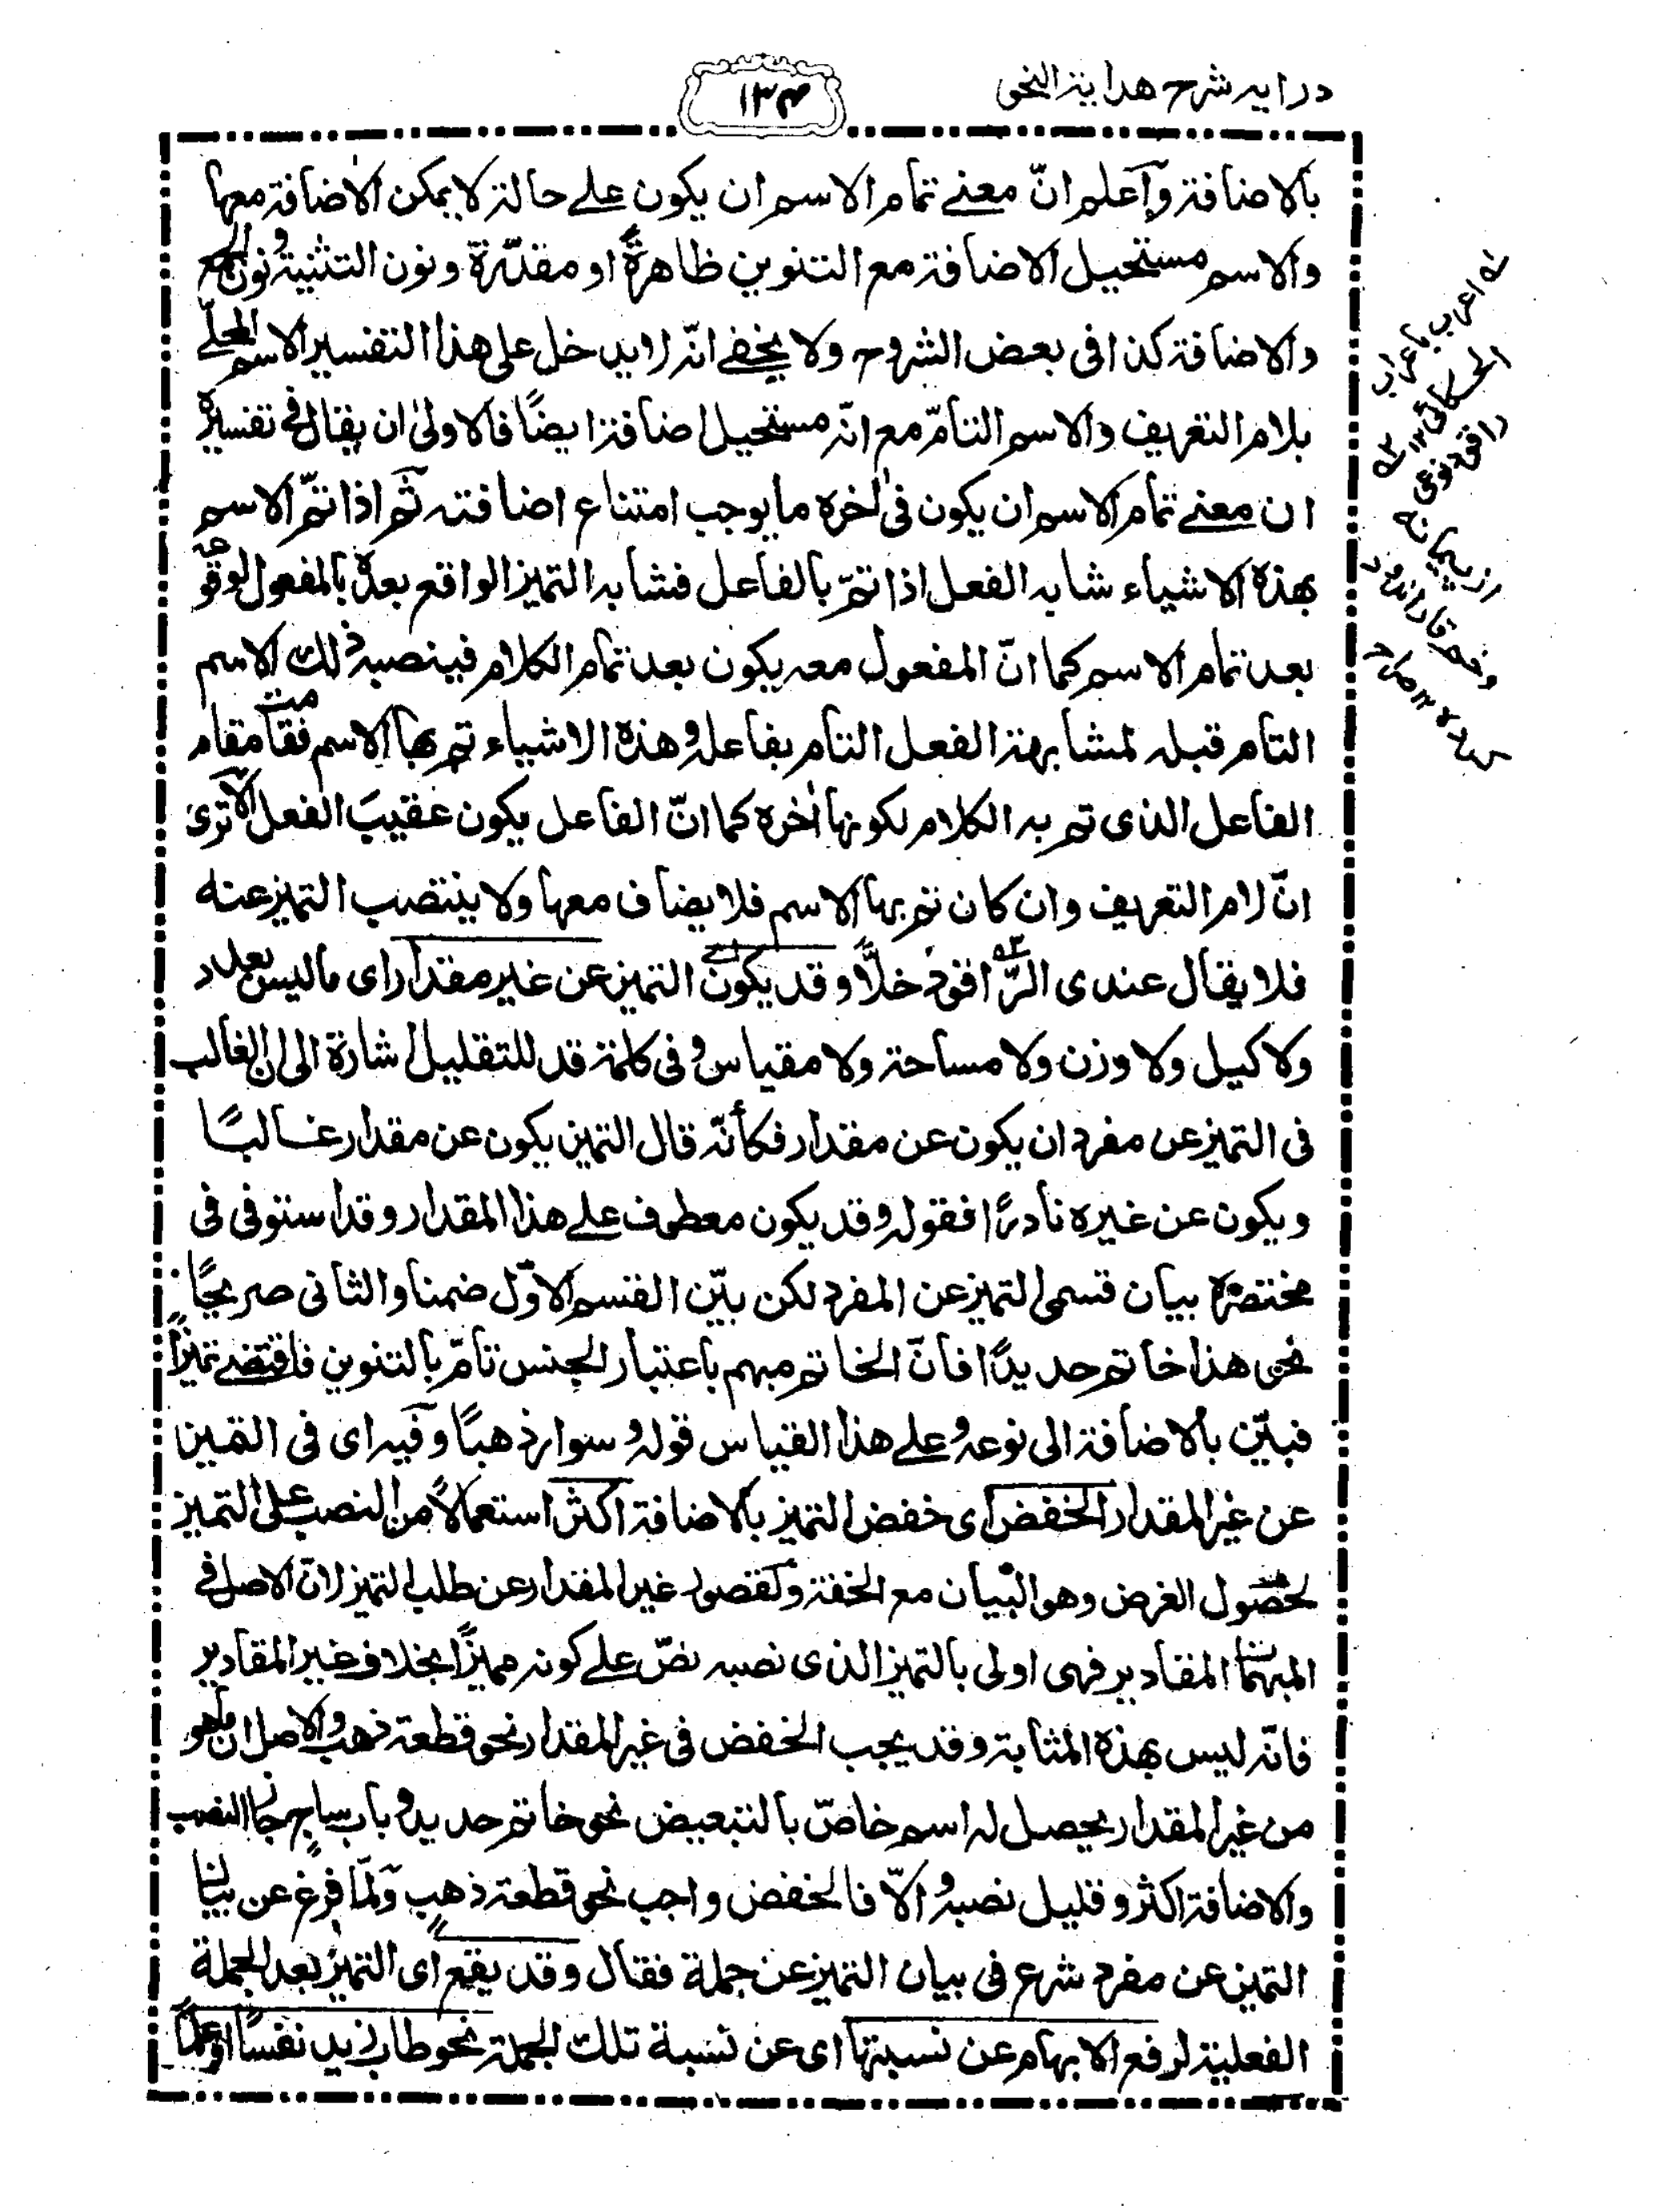 درایہ شرح هدایة النحو
۱۳۴
بالاضافة وٱعلم انّ معنے تمام الاسم ان یکون علے حالة لا یمکن الاضافة معها
والاسم مستحیل الاضافة مع التنوین ظاهرةً او مقدّرة ونون التثنیة ونون الجمع
والاضافة کذا فی بعض الشروح ولا یخفے انّه لا یدخل علی هذا التفسیر الاسم المحلّے
بلام التعریف والاسم التامّ مع انّه مستحیل اضافته ایضًا فالاولیٰ ان یقال فے تفسیره
ان معنے تمام الاسم ان یکون فی اٰخره ما یوجب امتناع اضافته ثم اذا تمّ الاسم
بهذه الاشیاء شابه الفعل اذا تمّ بالفاعل فشابه التمیز الواقع بعده بالمفعول لوقوعه
بعد تمام الاسم کما انّ المفعول معه یکون بعد تمام الکلام فینصبه ذلك الاسم
التام قبله لمشابهته الفعل التام بفاعله وهذه الاشیاء تم بها الاسم فقامت مقام
الفاعل الذی تم به الکلام لکونها اٰخره کما انّ الفاعل یکون عقیبَ الفعل الا تری
انّ لام التعریف وان کان تم بها الاسم فلا یضاف معها ولا ینتصب التمیز عنه
فلا یقال عندی الرّاقود خلًّا وقد یکون التمیز عن غیر مقدار ای ما لیس بعدد
ولا کیل ولا وزن ولا مساحة ولا مقیاس وفی کلمة قد للتقلیل اشارة الی ان الغالب
فی التمیز عن مفرد ان یکون عن مقدار فکأنّه قال التمیز یکون عن مقدار غالبًا
ویکون عن غیره نادرًا فقوله وقد یکون معطوف علے هذا المقدار وقد استوفی فی
مختصره بیان قسمی التمیز عن المفرد لکن بیّن القسم الاوّل ضمنا والثانی صریحًا
نحو هذا خاتم حدیدًا فانّ الخاتم مبهم باعتبار الجنس تامّ بالتنوین فاقتضے تمیزًا
فبیّن بالاضافة الی نوعه وعلے هذا القیاس قوله وسوار ذهبًا وفیه ای فی التمیز
عن غیر المقدار الخفض ای خفض التمیز بالاضافة اکثر استعمالًا من النصب علی التمیز
لحصول الغرض وهو البیان مع الخفة ولقصور غیر المقدار عن طلب التمیز لان الاصل فے
المبهمات المقادیر فهی اولی بالتمیز الذی نصبه نصّ علے کونه ممیزًا بخلاف غیر المقادیر
فانّه لیس بهذه المثابة وقد یجب الخفض فی غیر المقدار نحو قطعة ذهب والاصل ان ما هو
من غیر المقدار یحصل له اسم خاصّ بالتبعیض نحو خاتم حدید وباب ساج جاز النصب
والاضافة اکثر وقلیل نصبه والّا فالخفض واجب نحو قطعة ذهب ولمّا فرغ عن بیان
التمیز عن مفرد شرع فی بیان التمیز عن جملة فقال وقد یقع ای التمیز بعد الجملة
الفعلیة لرفع الابهام عن نسبتها ای عن نسبة تلك الجملة نحو طاب زید نفسًا او علمًا